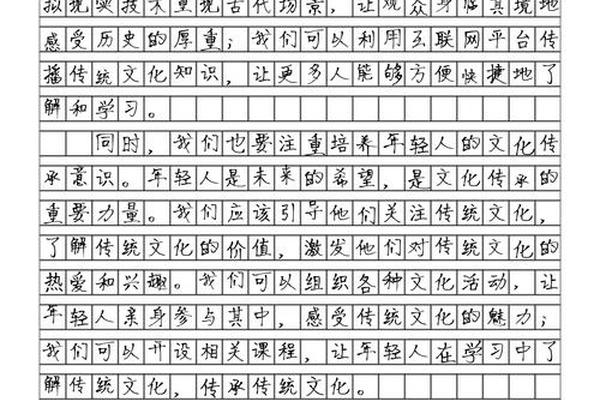 拟现实技术重现古代场景，让观众身临其境地
感受历史的厚重；我们可以利用互联网平台传
播传统文化知识，让更多人能够方便快捷地了
解和学习。
同时，我们也要注重培养年轻人的文化传
承意识。年轻人是未来的希望，是文化传承的
重要力量。我们应该引导他们关注传统文化，
了解传统文化的价值，激发他们对传统文化的
热爱和兴趣。我们可以组织各种文化活动，让
年轻人亲身参与其中，感受传统文化的魅力；
我们可以开设相关课程，让年轻人在学习中了
解传统文化，传承传统文化。